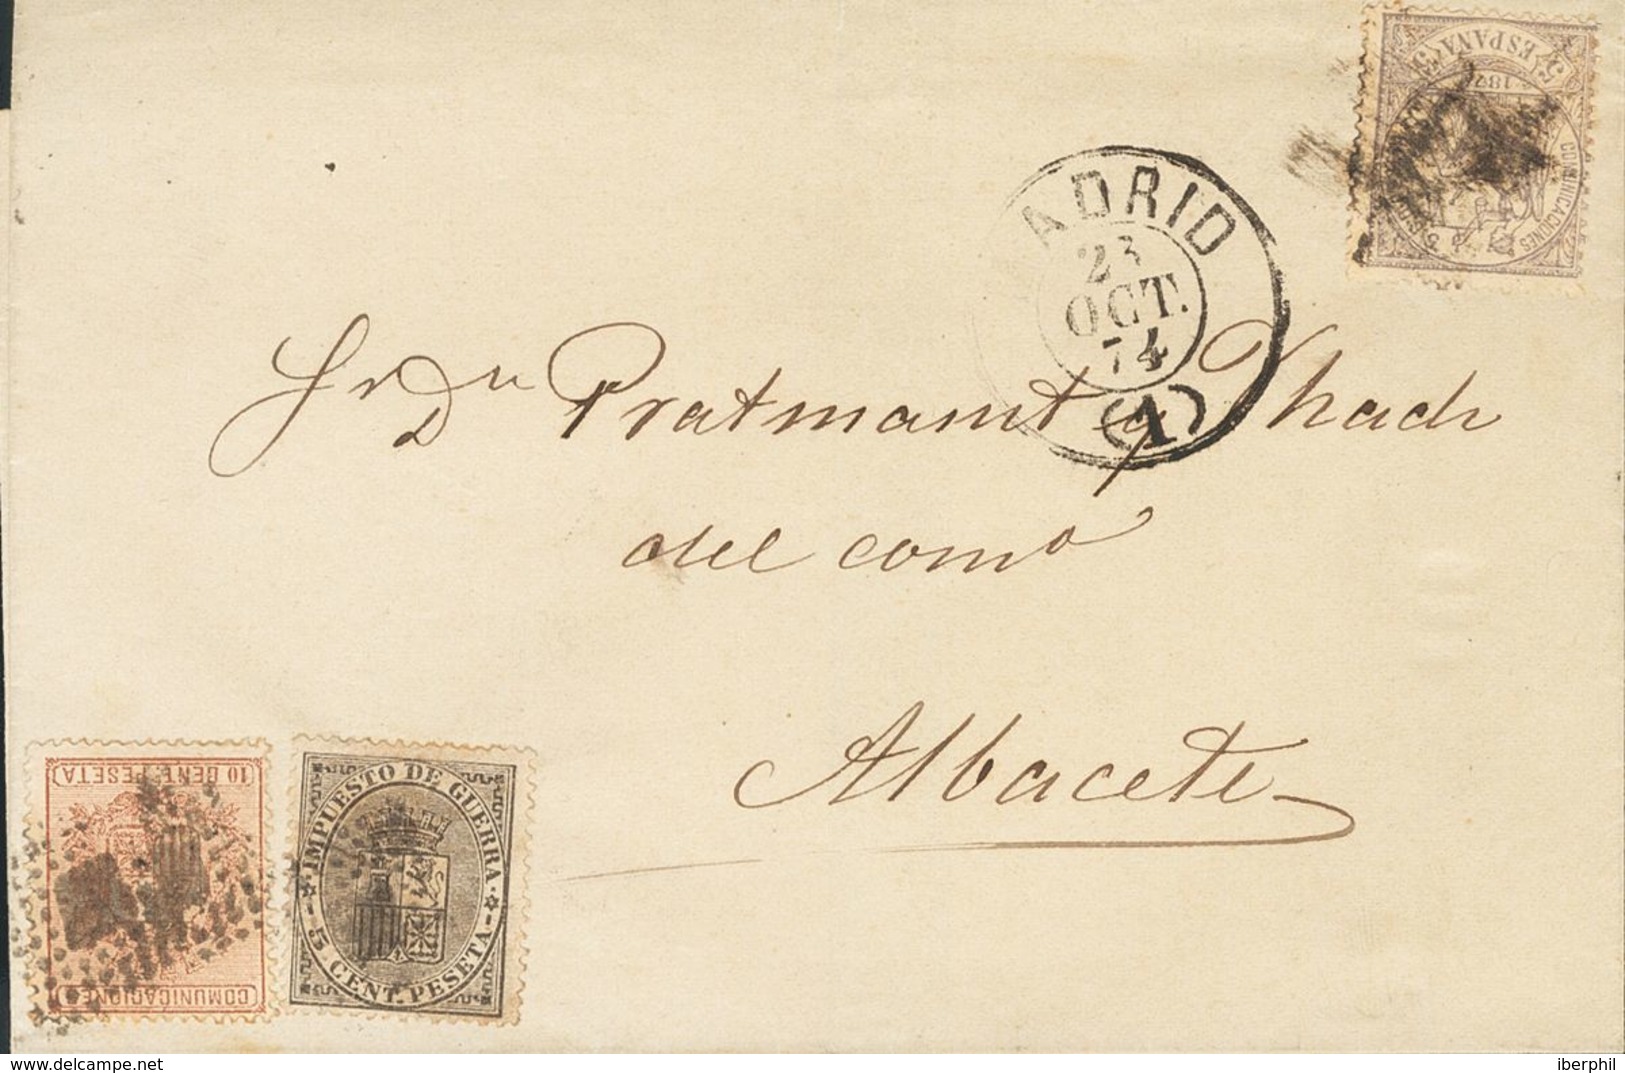 5 ESPAÑA 5
187
COMUNICACIONES
MADRID
23
OCT.
74
(1)
Sr Dn Pratmamt y Khadr
del como
Albacete
10 CENT. PESETA
COMUNICACIONES
IMPUESTO DE GUERRA
5 CENT. PESETA
delcampe.net
iberphil